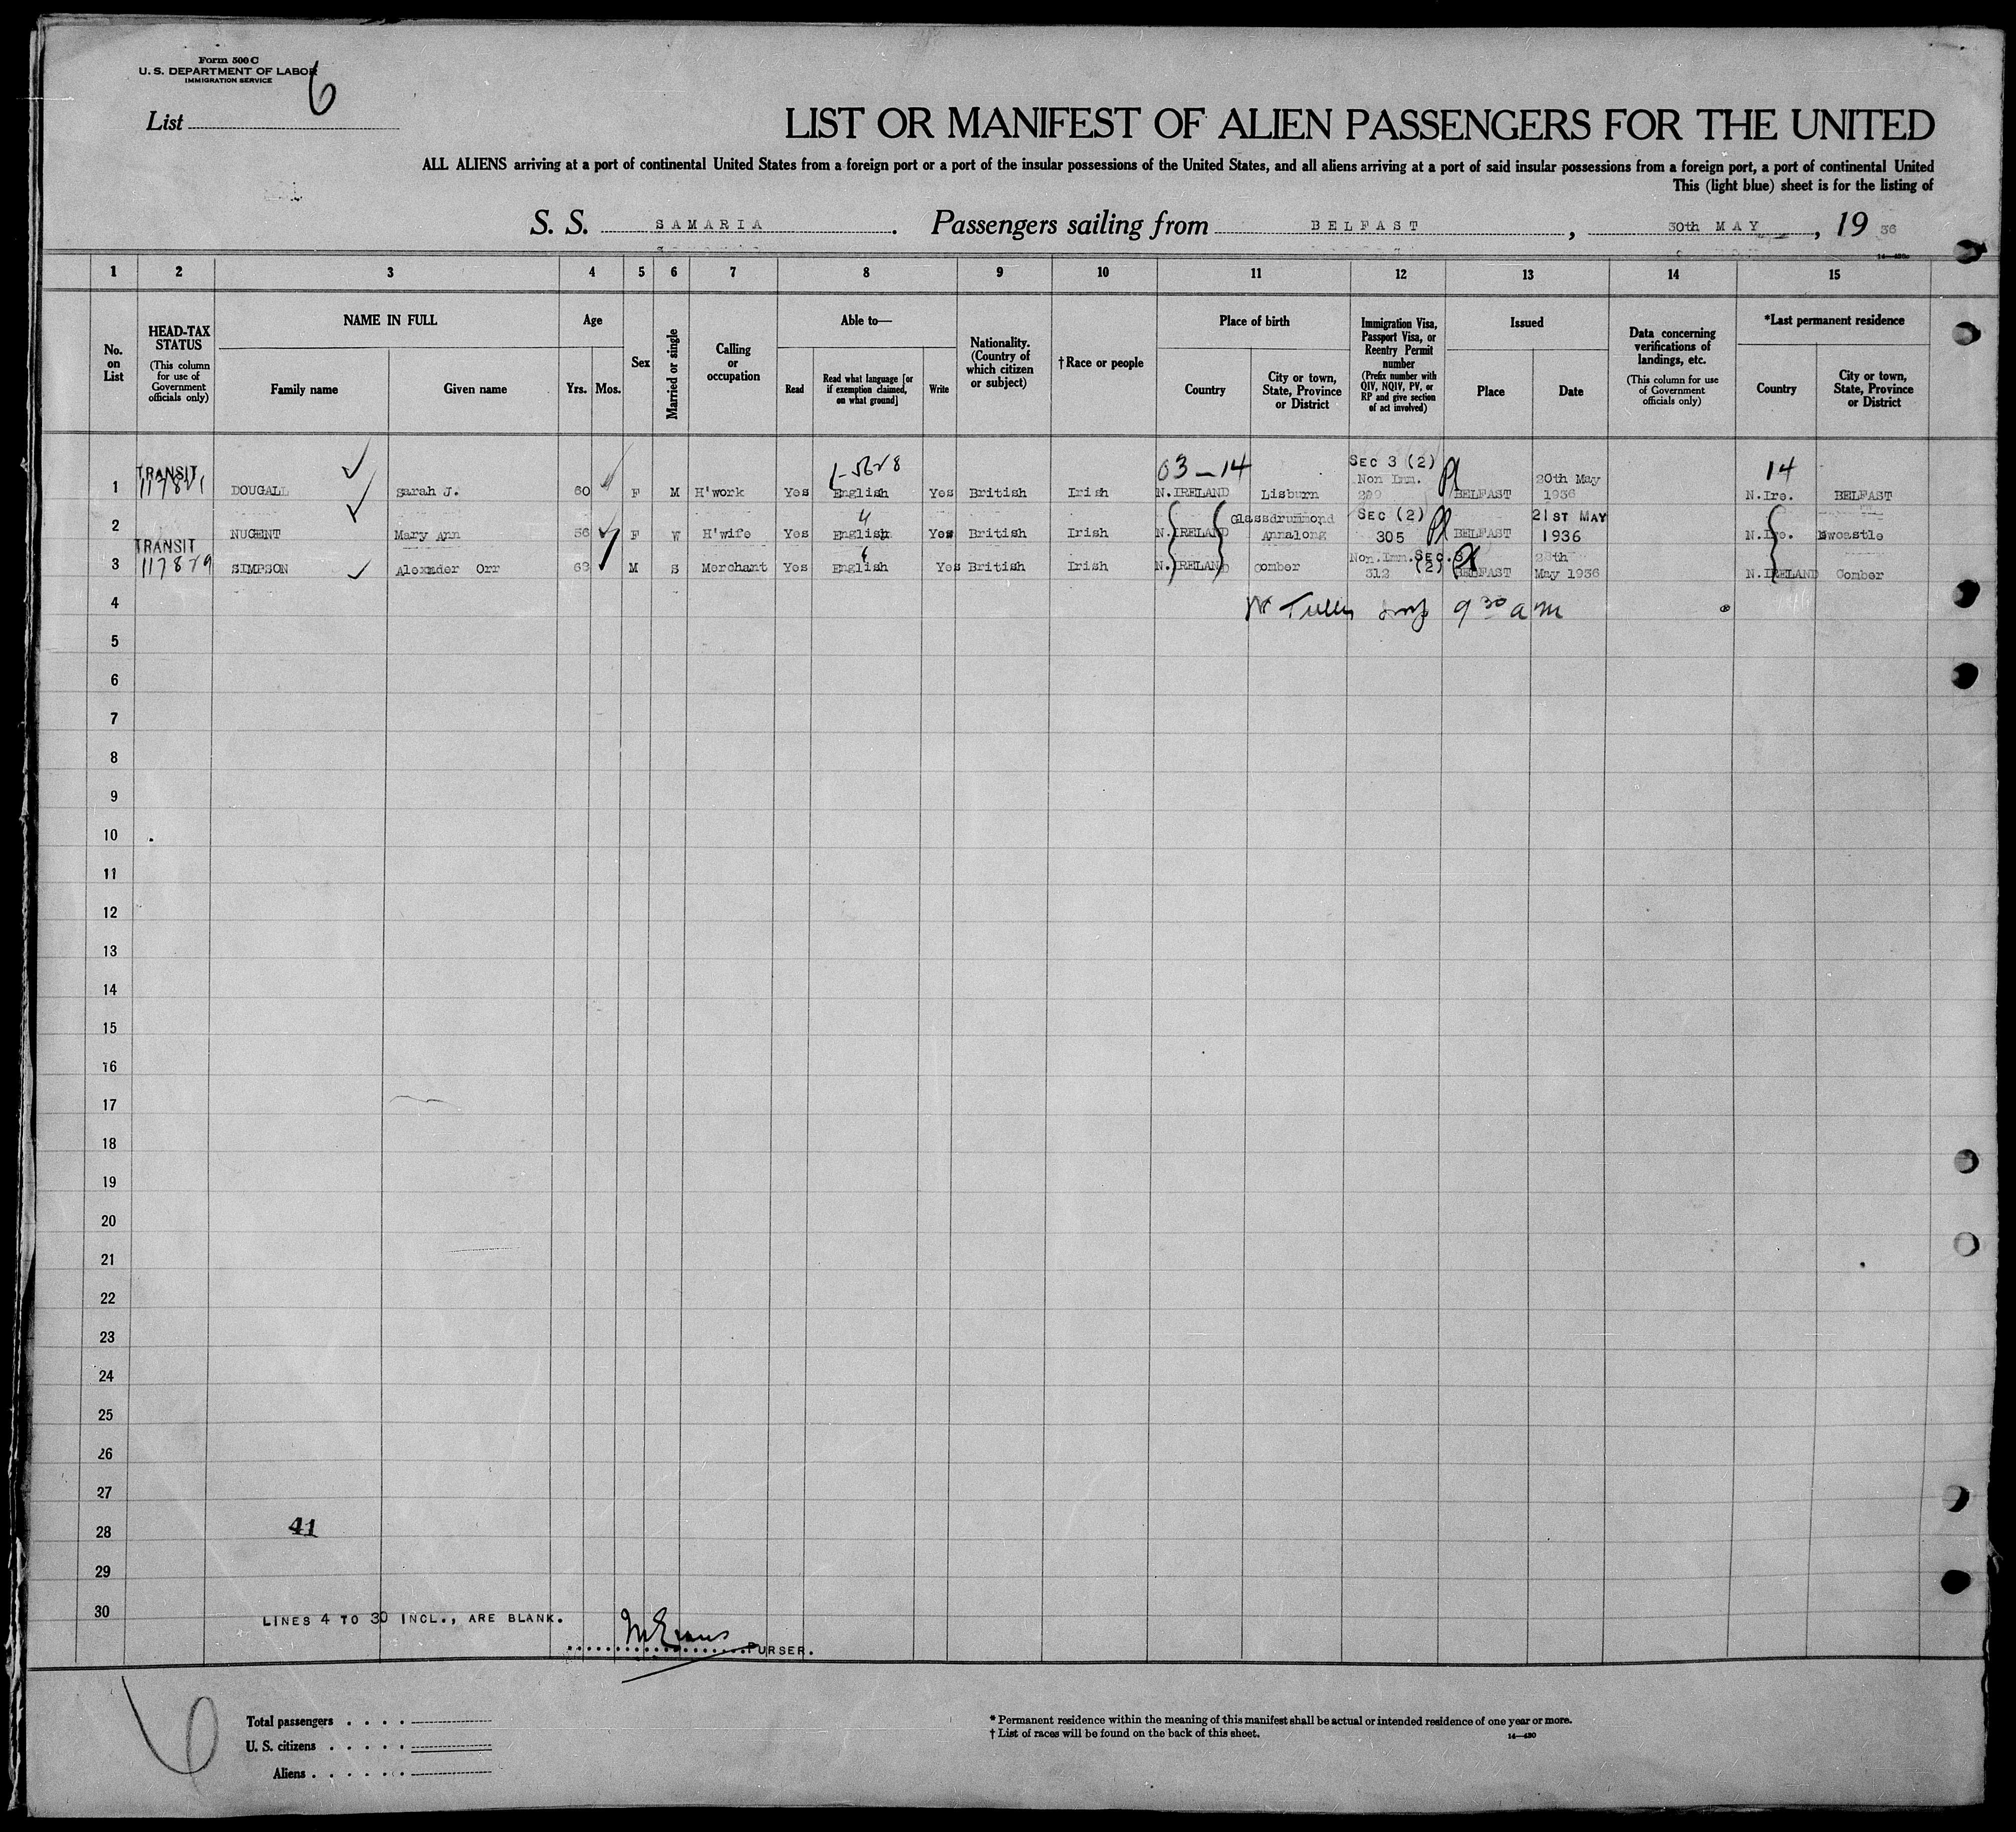 Form 500 C
U. S. DEPARTMENT OF LABOR
IMMIGRATION SERVICE
6
List
LIST OR MANIFEST OF ALIEN PASSENGERS FOR THE UNITED
ALL ALIENS arriving at a port of continental United States from a foreign port or a port of the insular possessions of the United States, and all aliens arriving at a port of said insular possessions from a foreign port, a port of continental United
This (light blue) sheet is for the listing of
S. S. SAMARIA. Passengers sailing from BELFAST, 30th MAY, 19 36
14—430
1 2 3 4 5 6 7 8 9 10 11 12 13 14 15
No. on List
HEAD-TAX STATUS (This column for use of Government officials only)
NAME IN FULL
Family name
Given name
Age
Yrs. Mos.
Sex
Married or single
Calling or occupation
Able to—
Read
Read what language [or if exemption claimed, on what ground]
Write
Nationality. (Country of which citizen or subject)
† Race or people
Place of birth
Country
City or town, State, Province or District
Immigration Visa, Passport Visa, or Reentry Permit number (Prefix number with QIV, NQIV, PV, or RP and give section of act involved)
Issued
Place
Date
Data concerning verifications of landings, etc. (This column for use of Government officials only)
*Last permanent residence
Country
City or town, State, Province or District
03-14 SEC 3 (2) 14
TRANSIT Non Imm. 20th May
1 DOUGALL Sarah J. 60 F M H'work Yes English Yes British Irish N. IRELAND Lisburn 299 BELFAST 1936 N.Ire. BELFAST
Glassdrummond SEC (2) 21ST MAY
2 NUGENT Mary Ann 56 F W H'wife Yes English Yes British Irish N. IRELAND Annalong 305 BELFAST 1936 N. Ire. Newcastle
TRANSIT Non.Imm.SEC.3 (2)
3 117879 SIMPSON Alexnder Orr 63 M S Merchant Yes English Yes British Irish N. IRELAND Comber 312 BELFAST May 1936 N. IRELAND Comber
4 9 30 a m
5
6
7
8
9
10
11
12
13
14
15
16
17
18
19
20
21
22
23
24
25
26
27
28 41
29
30 LINES 4 TO 30 INCL., ARE BLANK.
M Evans PURSER.
6
Total passengers
U. S. citizens
Aliens
* Permanent residence within the meaning of this manifest shall be actual or intended residence of one year or more.
† List of races will be found on the back of this sheet.
14—430